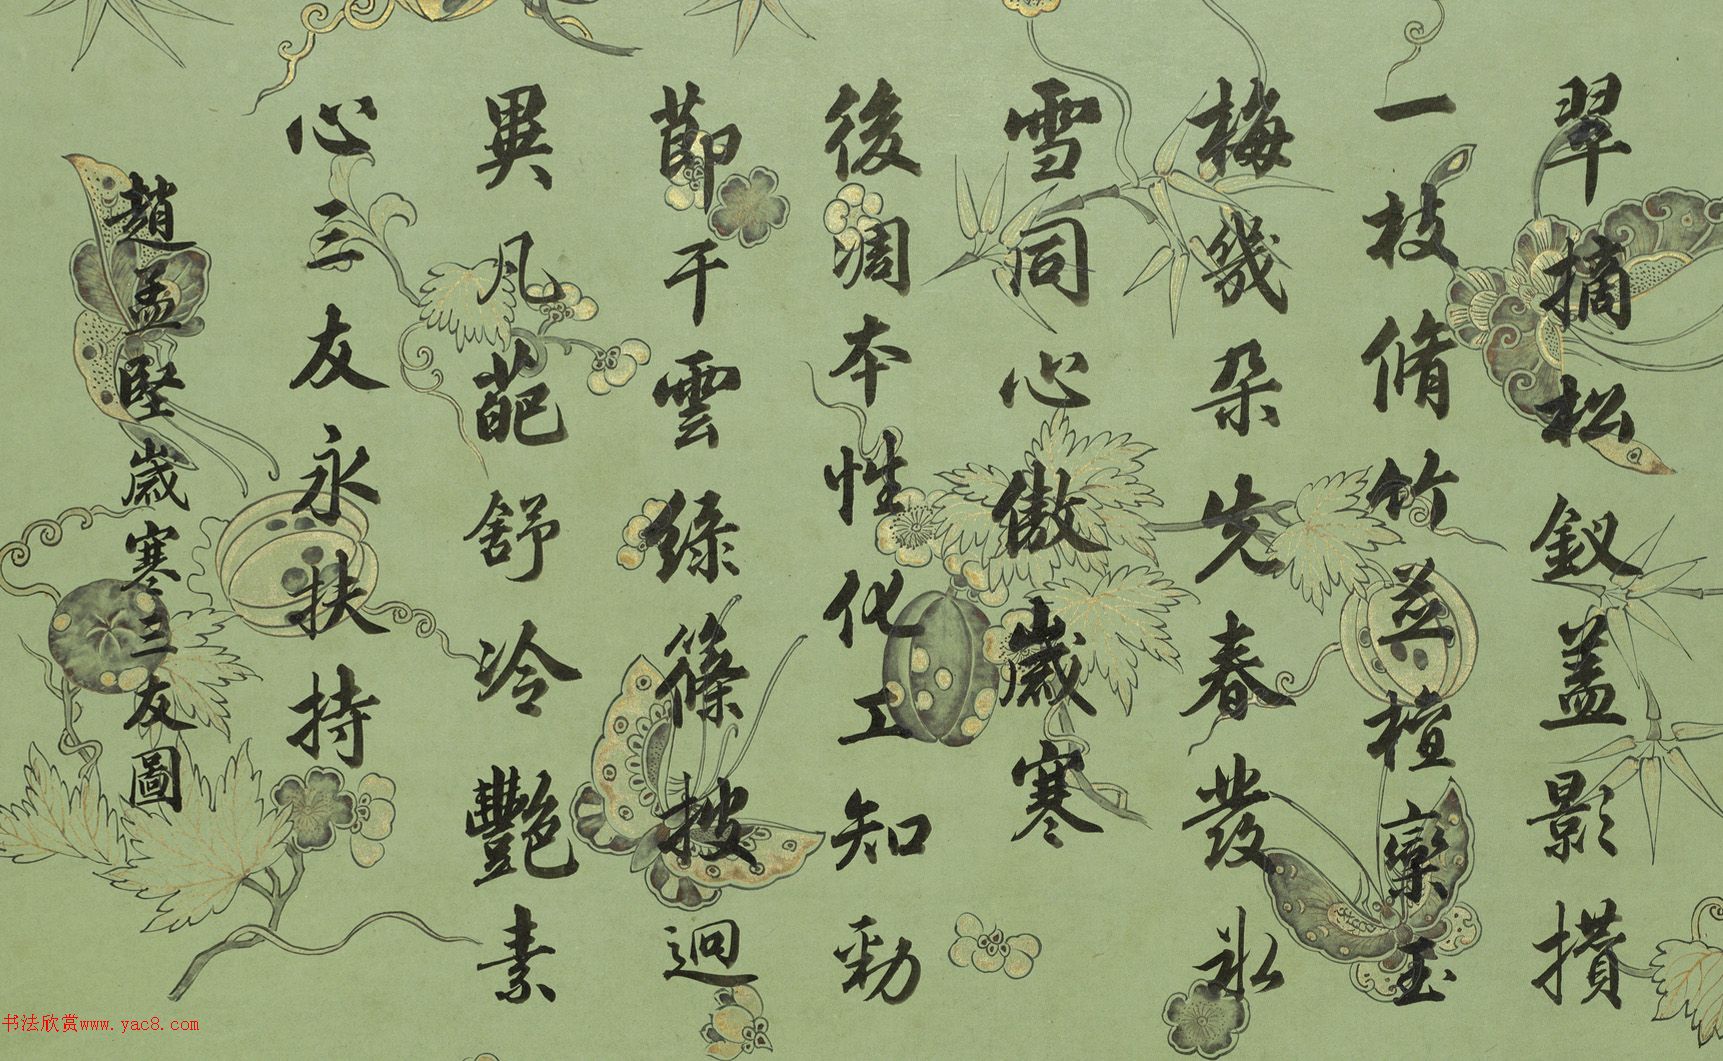 翠摘松釵蓋影攢
一枝脩竹並檀欒玉
梅幾朵先春發氷
雪同心傲歲寒
後凋本性化工知勁
節干雲綠篠披迥
異凡葩舒冷艷素
心三友永扶持
趙孟堅歲寒三友圖
书法欣赏www.yac8.com